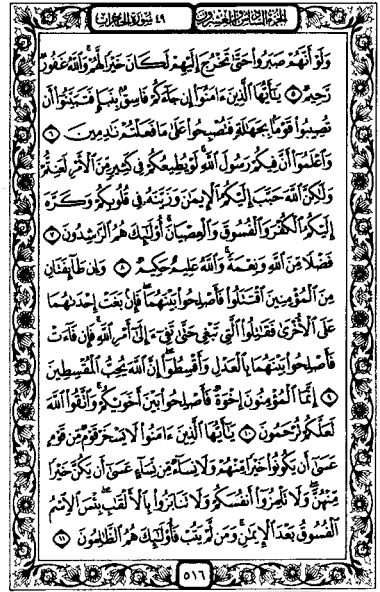 الجزء السادس والعشرون
٤٩ سورة الحجرات
وَلَوْ أَنَّهُمْ صَبَرُوا۟ حَتَّىٰ تَخْرُجَ إِلَيْهِمْ لَكَانَ خَيْرًا لَّهُمْ ۚ وَٱللَّهُ غَفُورٌ
رَّحِيمٌ ٥ يَـٰٓأَيُّهَا ٱلَّذِينَ ءَامَنُوٓا۟ إِن جَآءَكُمْ فَاسِقٌۢ بِنَبَإٍ فَتَبَيَّنُوٓا۟ أَن
تُصِيبُوا۟ قَوْمًۢا بِجَهَـٰلَةٍ فَتُصْبِحُوا۟ عَلَىٰ مَا فَعَلْتُمْ نَـٰدِمِينَ ٦
وَٱعْلَمُوٓا۟ أَنَّ فِيكُمْ رَسُولَ ٱللَّهِ ۚ لَوْ يُطِيعُكُمْ فِى كَثِيرٍ مِّنَ ٱلْأَمْرِ لَعَنِتُّمْ
وَلَـٰكِنَّ ٱللَّهَ حَبَّبَ إِلَيْكُمُ ٱلْإِيمَـٰنَ وَزَيَّنَهُۥ فِى قُلُوبِكُمْ وَكَرَّهَ
إِلَيْكُمُ ٱلْكُفْرَ وَٱلْفُسُوقَ وَٱلْعِصْيَانَ ۚ أُو۟لَـٰٓئِكَ هُمُ ٱلرَّٰشِدُونَ ٧
فَضْلًا مِّنَ ٱللَّهِ وَنِعْمَةً ۚ وَٱللَّهُ عَلِيمٌ حَكِيمٌ ٨ وَإِن طَآئِفَتَانِ
مِنَ ٱلْمُؤْمِنِينَ ٱقْتَتَلُوا۟ فَأَصْلِحُوا۟ بَيْنَهُمَا ۖ فَإِنۢ بَغَتْ إِحْدَىٰهُمَا
عَلَى ٱلْأُخْرَىٰ فَقَـٰتِلُوا۟ ٱلَّتِى تَبْغِى حَتَّىٰ تَفِىٓءَ إِلَىٰٓ أَمْرِ ٱللَّهِ ۚ فَإِن فَآءَتْ
فَأَصْلِحُوا۟ بَيْنَهُمَا بِٱلْعَدْلِ وَأَقْسِطُوٓا۟ ۖ إِنَّ ٱللَّهَ يُحِبُّ ٱلْمُقْسِطِينَ
٩ إِنَّمَا ٱلْمُؤْمِنُونَ إِخْوَةٌ فَأَصْلِحُوا۟ بَيْنَ أَخَوَيْكُمْ ۚ وَٱتَّقُوا۟ ٱللَّهَ
لَعَلَّكُمْ تُرْحَمُونَ ١٠ يَـٰٓأَيُّهَا ٱلَّذِينَ ءَامَنُوا۟ لَا يَسْخَرْ قَوْمٌ مِّن قَوْمٍ
عَسَىٰٓ أَن يَكُونُوا۟ خَيْرًا مِّنْهُمْ وَلَا نِسَآءٌ مِّن نِّسَآءٍ عَسَىٰٓ أَن يَكُنَّ خَيْرًا
مِّنْهُنَّ ۖ وَلَا تَلْمِزُوٓا۟ أَنفُسَكُمْ وَلَا تَنَابَزُوا۟ بِٱلْأَلْقَـٰبِ ۖ بِئْسَ ٱلِٱسْمُ
ٱلْفُسُوقُ بَعْدَ ٱلْإِيمَـٰنِ ۚ وَمَن لَّمْ يَتُبْ فَأُو۟لَـٰٓئِكَ هُمُ ٱلظَّـٰلِمُونَ ١١
٥١٦